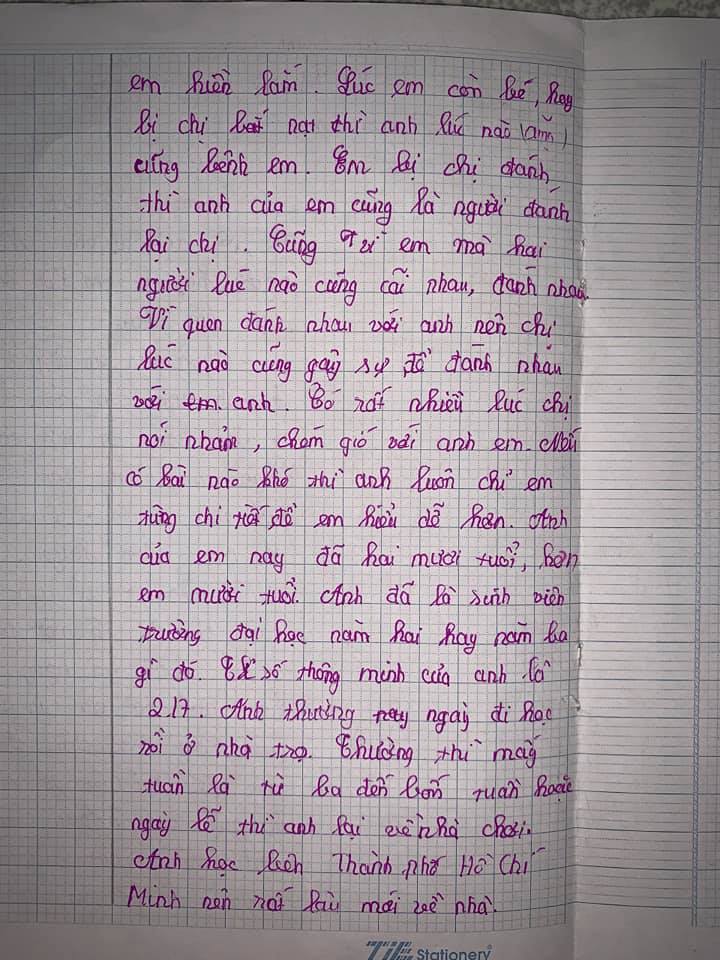 em hiền lắm. Lúc em còn bé, hay
bị chị bắt nạt thì anh lúc nào
cũng bênh em. Em bị chị đánh
thì anh của em cũng là người đánh
lại chị. Cũng vì em mà hai
người lúc nào cũng cãi nhau, đánh nhau.
Vì quen đánh nhau với anh nên chị
lúc nào cũng gây sự để đánh nhau
với em. anh. Có rất nhiều lúc chị
nói nhảm, chém gió với anh em. Mỗi
có bài nào khó thì anh luôn chỉ em
từng chi tiết để em hiểu dễ hơn. Anh
của em nay đã hai mươi tuổi, hơn
em mười tuổi. Anh đã là sinh viên
trường đại học năm hai hay năm ba
gì đó. Chỉ số thông minh của anh là
217. Anh thường ngày đi học
rồi ở nhà trọ. Thường thì mấy
tuần là từ ba đến bốn tuần hoặc
ngày lễ thì anh lại về nhà chơi.
Anh học bên Thành phố Hồ Chí
Minh nên rất lâu mới về nhà.
Stationery